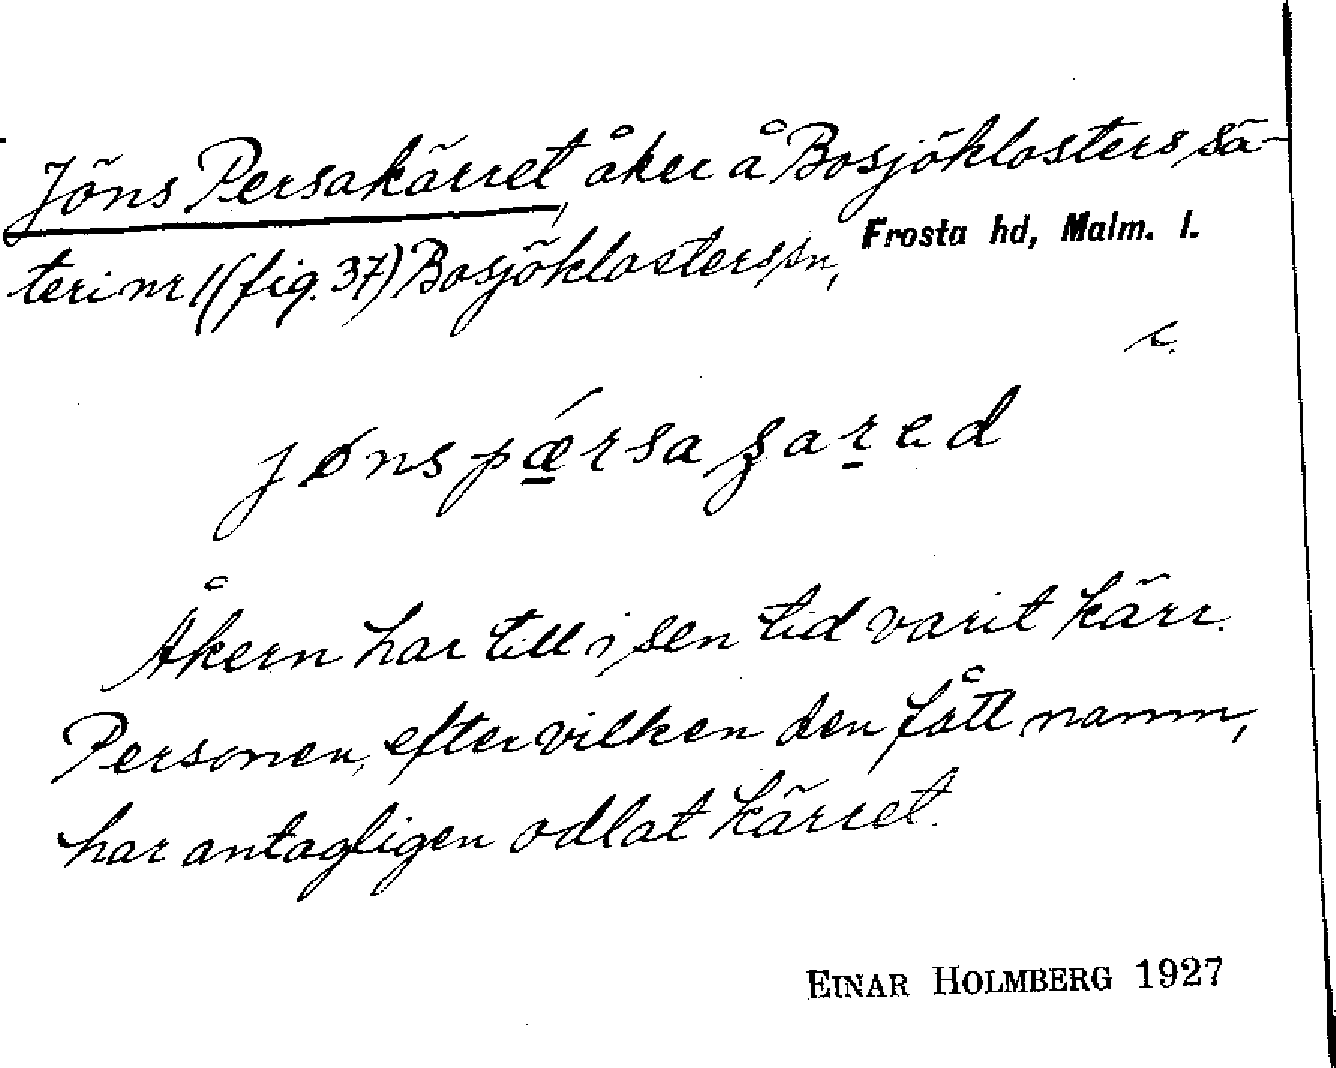 Jöns Persakärret, åker å Bosjöklosters sä-
teri nr 1 (fig. 37) Bosjöklosters sn, Frosta hd, Malm. l.
c.
Åkern har till i sen tid varit kärr.
Personen, efter vilken den fått namn,
har antagligen odlat kärret.
EINAR HOLMBERG 1927